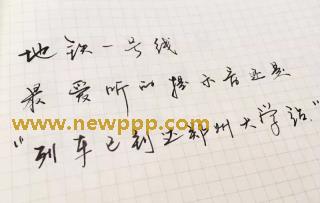 地铁一号线
最爱听的提示音还是
www.newppp.com
"列车已到达郑州大学站."